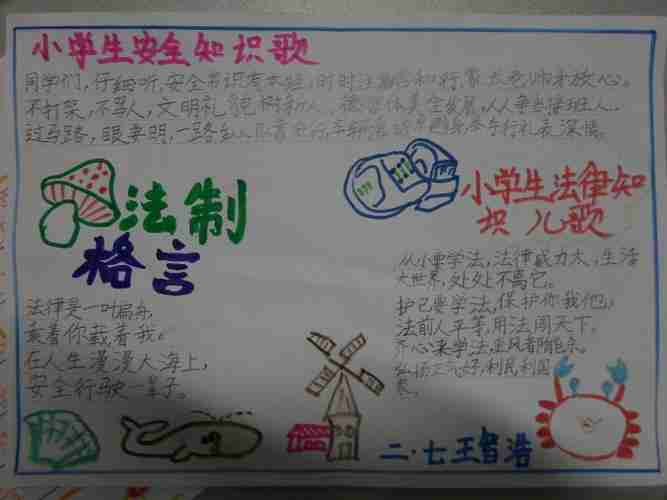 小学生安全知识歌
同学们,仔细听,安全常识有本经,时时注意言和行,家长老师才放心。
不打架,不骂人,文明礼貌树新人,德智体美全发展,人人争当接班人.
过马路,眼要明,一路行礼表深情。
法制
格言
法律是一叶扁舟,
乘着你载着我。
在人生漫漫大海上,
安全行驶一辈子。
小学生法律知
识儿歌
从小要学法,法律威力大,生活
大世界,处处不离它。
护己要学法,保护你我他,
法前人平等,用法闯天下。
齐心来学法,
弘扬正气好,利民利国
二·七王智浩